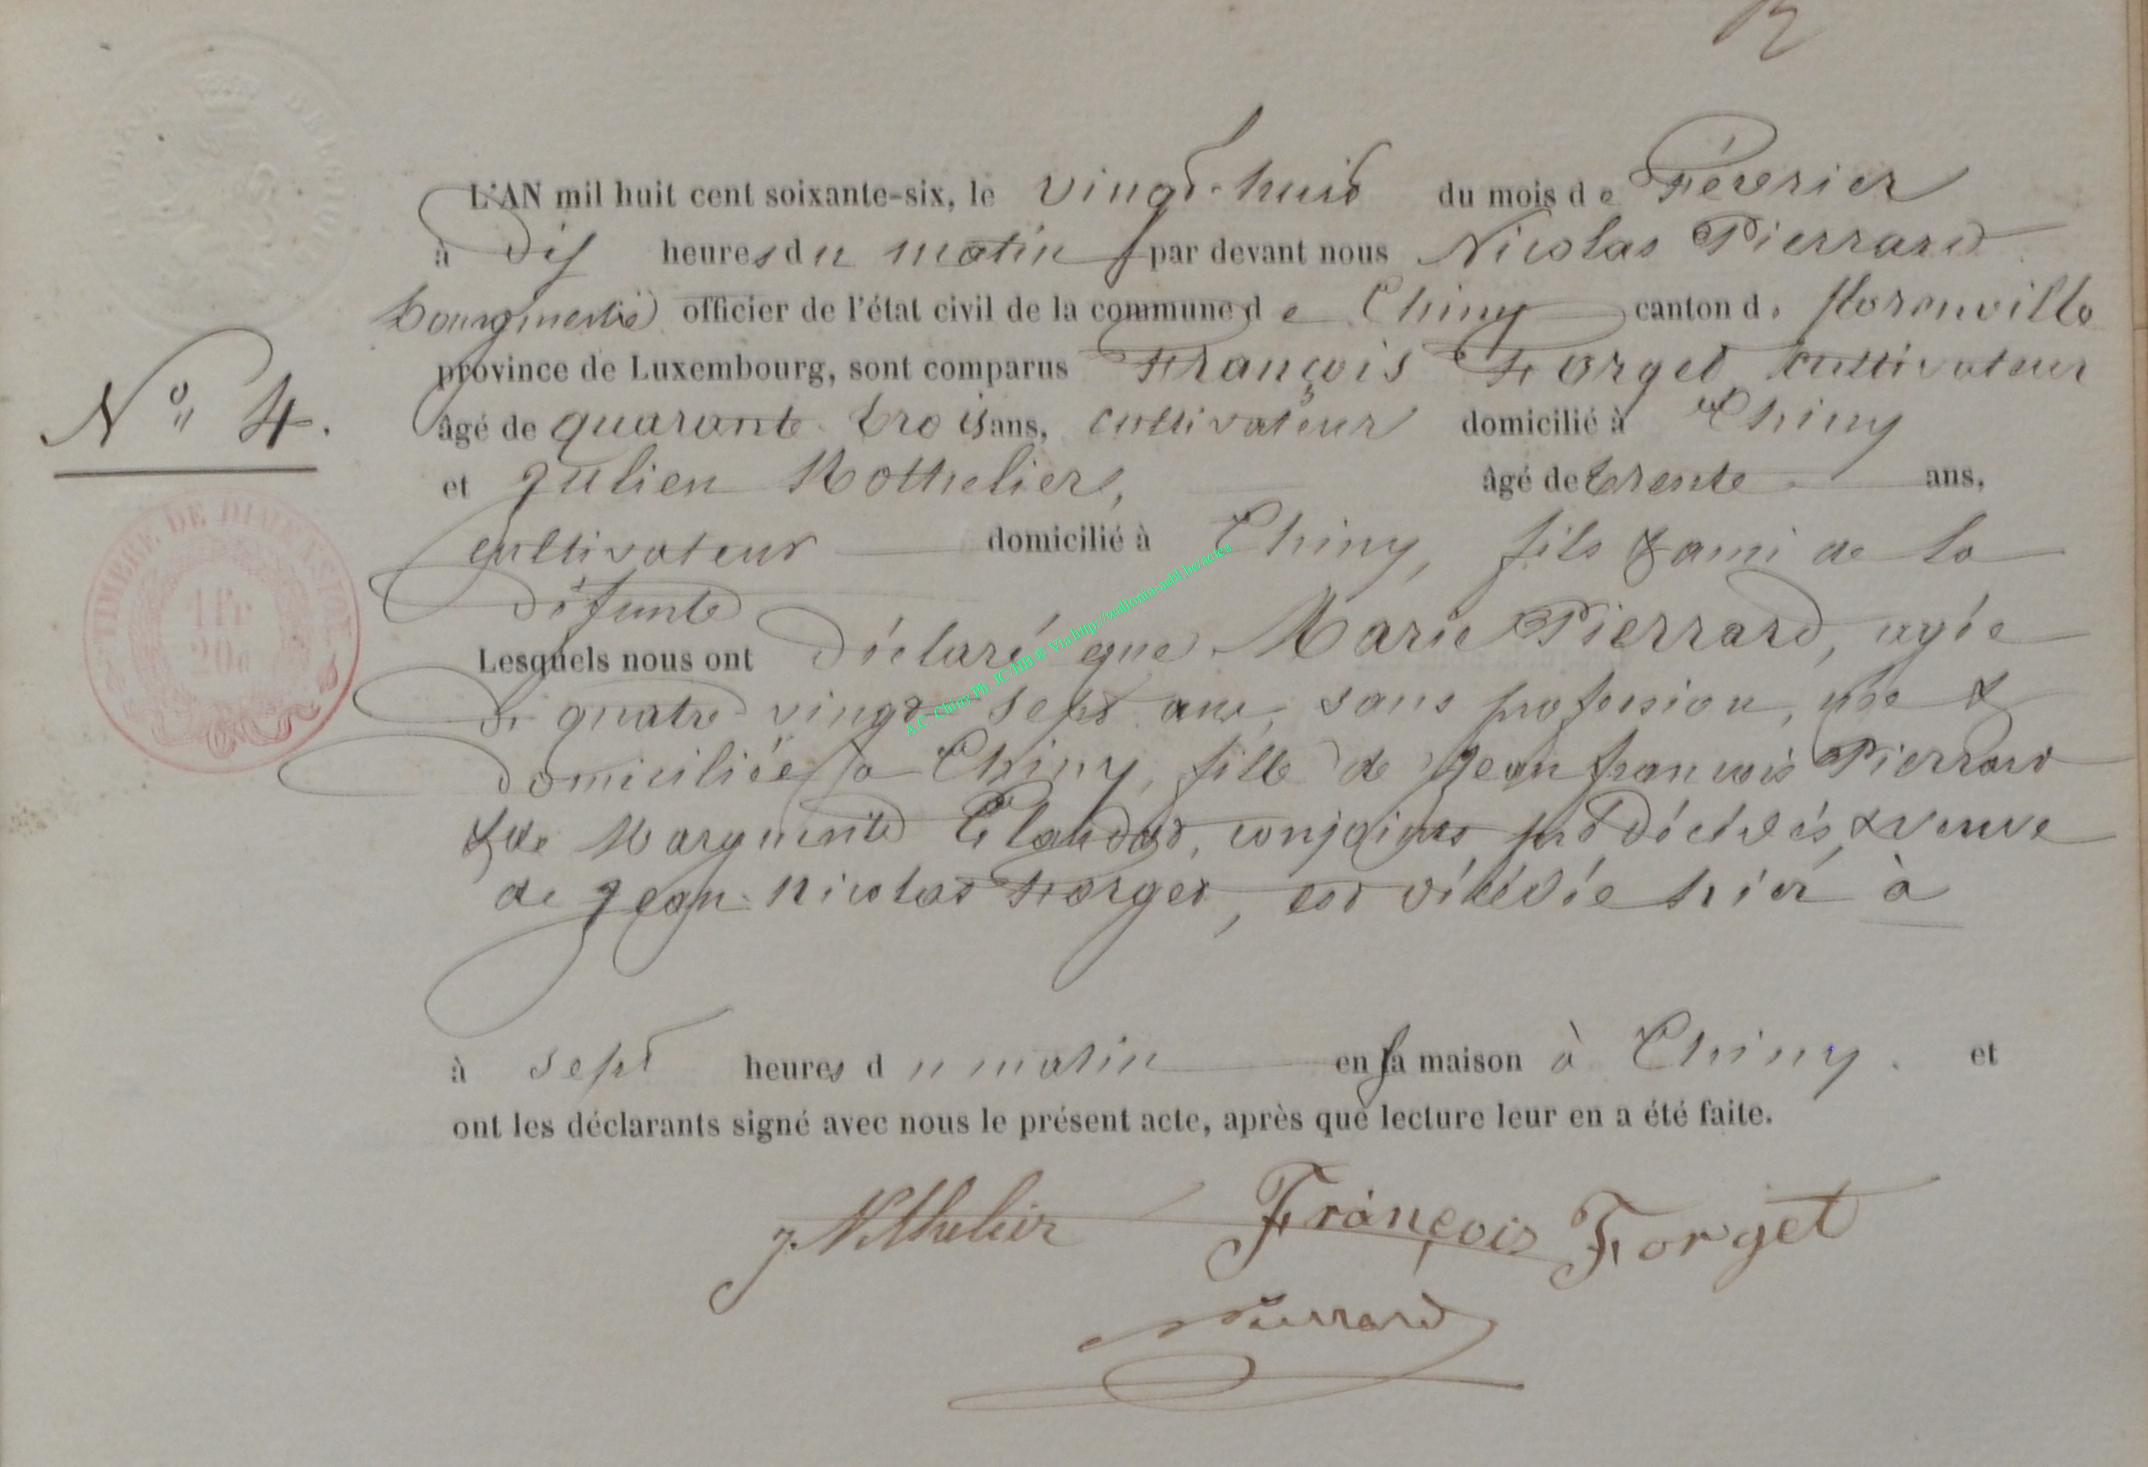 L'AN mil huit cent soixante-six, le vingt-huit du mois de Février
à dix heures du matin par devant nous Nicolas Pierrard
bourgmestre officier de l'état civil de la commune de Chiny canton de florenville
province de Luxembourg, sont comparus François Forget cultivateur
N° 4.
âgé de quarante trois ans, cultivateur domicilié à Chiny
et Julien Nothelier, âgé de trente ans,
cultivateur domicilié à Chiny, fils & ami de la
défunte
TIMBRE DE DIMENSION
1 fr
20c
Lesquels nous ont déclaré que Marie Pierrard, agée
de quatre vingt sept ans, sans profession, née &
domiciliée à Chiny, fille de Jean françois Pierrard
& de Marguerite Claudot, conjoints prédécédés, & veuve
de Jean Nicolas Forget, est décédée hier à
à sept heures du matin en sa maison à Chiny. et
ont les déclarants signé avec nous le présent acte, après que lecture leur en a été faite.
J. Nothelier François Forget
Pierrard